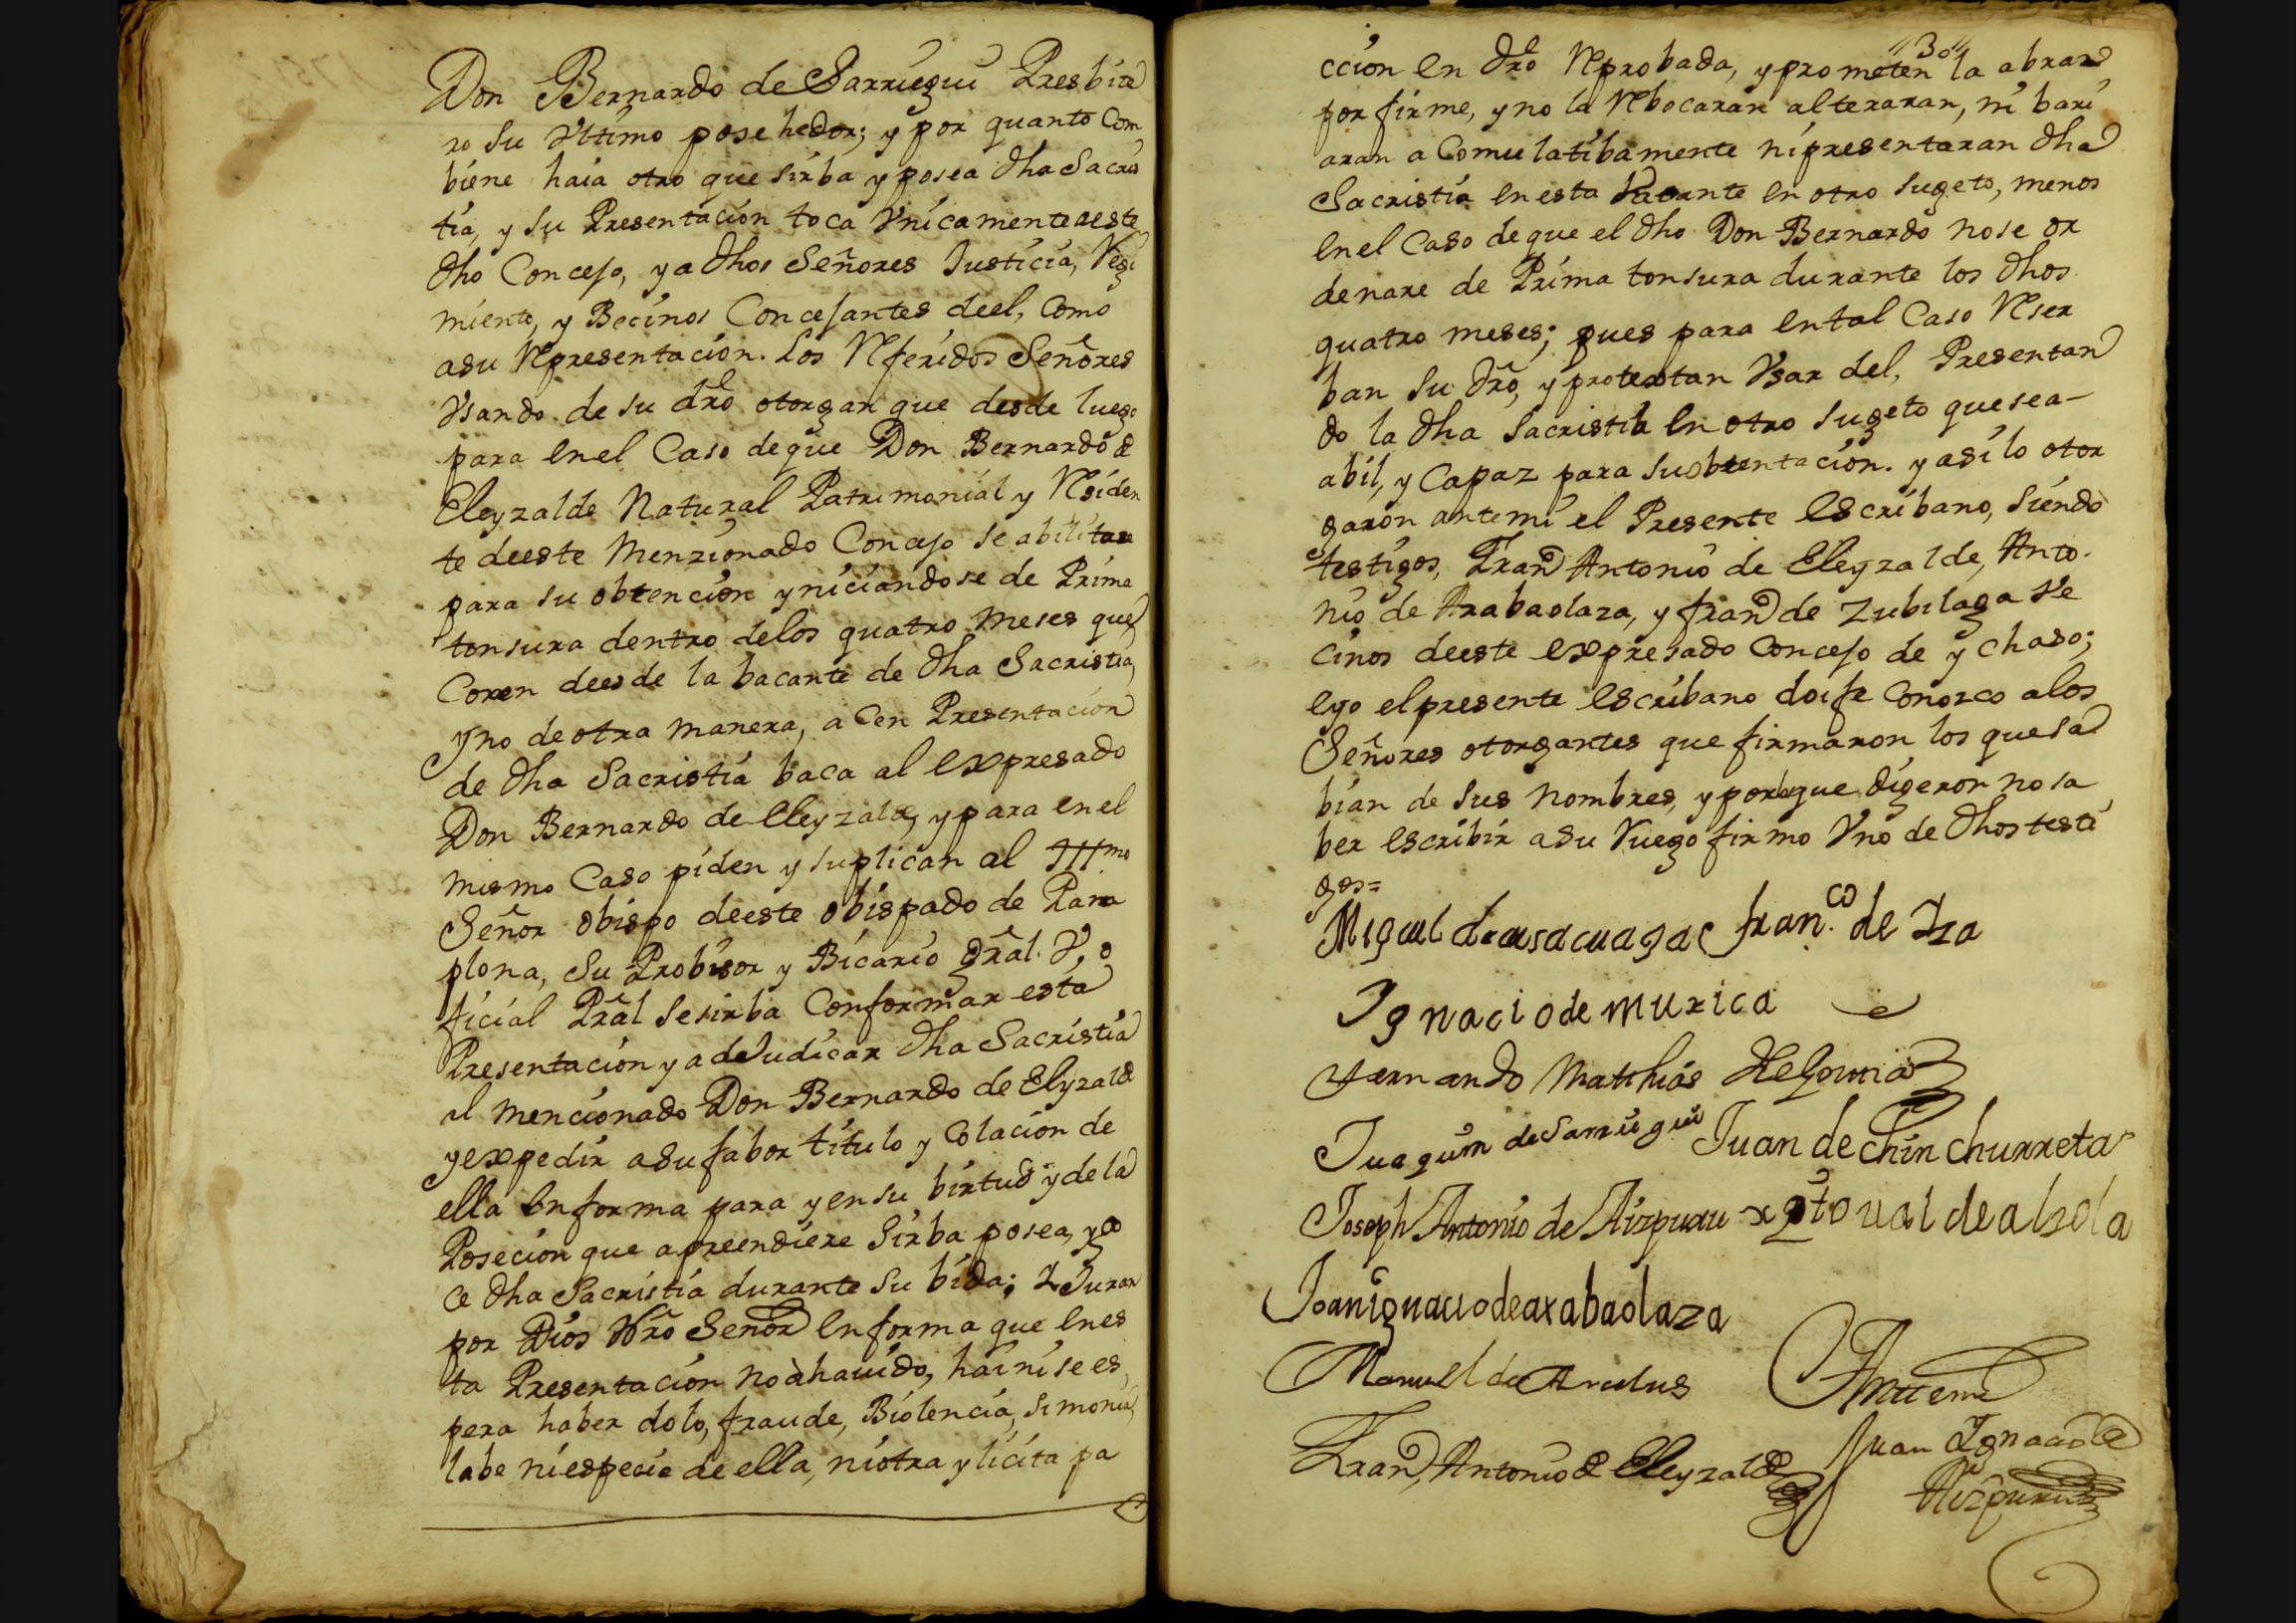 Don Bernardo de Sarruegui Presbite
ro su Vltimo posehedor; y por quanto Com
biene haia otro que sirba y posea dha Sacris
tia, y su Presentacion toca Vnicamente aeste
dho Concejo, y a dhos Señores Justicia, Regi
miento, y Becinos Concejantes deel, Como
asu Representacion. Los Referidos Señores
Vsando de su dro otorgan que desde luego
para enel Caso deque Don Bernardo de
Eleyzalde Natural Patrimonial y Residen
te deeste Menzionado Concejo se abilitare
para su obtencion yniciandose de Prima
tonsura dentro delos quatro Meses que
Corren deesde la bacante de dha Sacristia,
yno deotra manera, acen Presentacion
de dha Sacristia baca al expresado
Don Bernardo de Eleyzalde, y para enel
mismo Caso piden y suplican al Illmo
Señor obispo deeste obispado de Pam
plona, su Probisor y Bicario gral. V, o
ficial Pral sesirba Conformar esta
Presentacion y adJudicar dha Sacristia
al mencionado Don Bernardo de Elyzalde
yexpedir asufabor titulo y Colacion de
ella enforma para yensu birtud ydela
Posecion que apreendiere Sirba posea, y go
ce dha Sacristia durante su bida; Y Juran
por Dios Nro Señor enforma que enes
ta Presentacion no à hauido, hai ni se es
pera haber dolo, fraude, Biolencia, simonia,
labe niespecie de ella, niotra ylicita pa
30
ccion en dro Reprobada, yprometen la abran
por firme, y no la Rebocaran alteraran, ni bari
aran a Comulatibamente nipresentaran dha
Sacristia enesta Vacante en otro sugeto, menos
enel Caso deque el dho Don Bernardo nose or
denare de Prima tonsura durante los dhos
quatro meses; pues para ental Caso Reser
ban su dro, y protextan Vsar del, Presentan
do la dha Sacristia en otro sugeto quesea
abil, y Capaz para suobtentacion. y asi lo otor
garon antemi el Presente escribano, siendo
testigos, Fran Antonio de Eleyzalde, Anto
nio de Arabaolaza, y fran de Zubilaga Ve
cinos deeste expresado Concejo de ychaso;
eyo elpresente escribano doife Conozco alos
Señores otorgantes que firmaron los quesa
bian de sus nombres, y porlosque digeron nosa
ber escribir asu Ruego firmo Vno de dhos testi
gos=
Miguel de fran.co de Iza
Ignacio de murica
Fernando Matthias de Goitia
Juaquin de Sarruegui Juan de chinchurreta
Joseph Antonio de Aizpuru xptoual de alzola
Joanignaciodearabaolaza
Manuel de
Antemi
Fran Antonio de Eleyzalde
Juan Ignacio de
Aizpuru